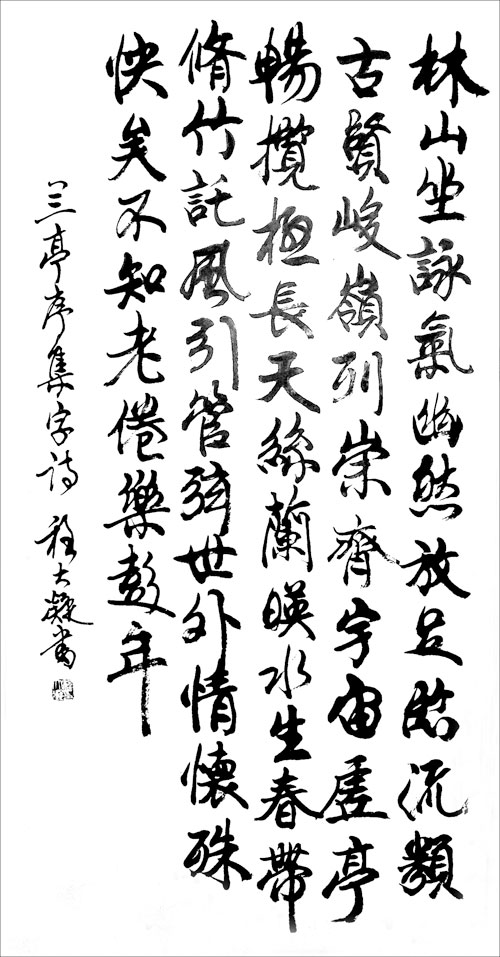 林山坐詠氣幽然放足臨流類
古賢峻嶺列崇齊宇宙虛亭
暢攬極長天絲蘭暎水生春帶
脩竹託風引管弦世外情懷殊
快矣不知老倦樂彭年
兰亭序集字詩 程大凝書